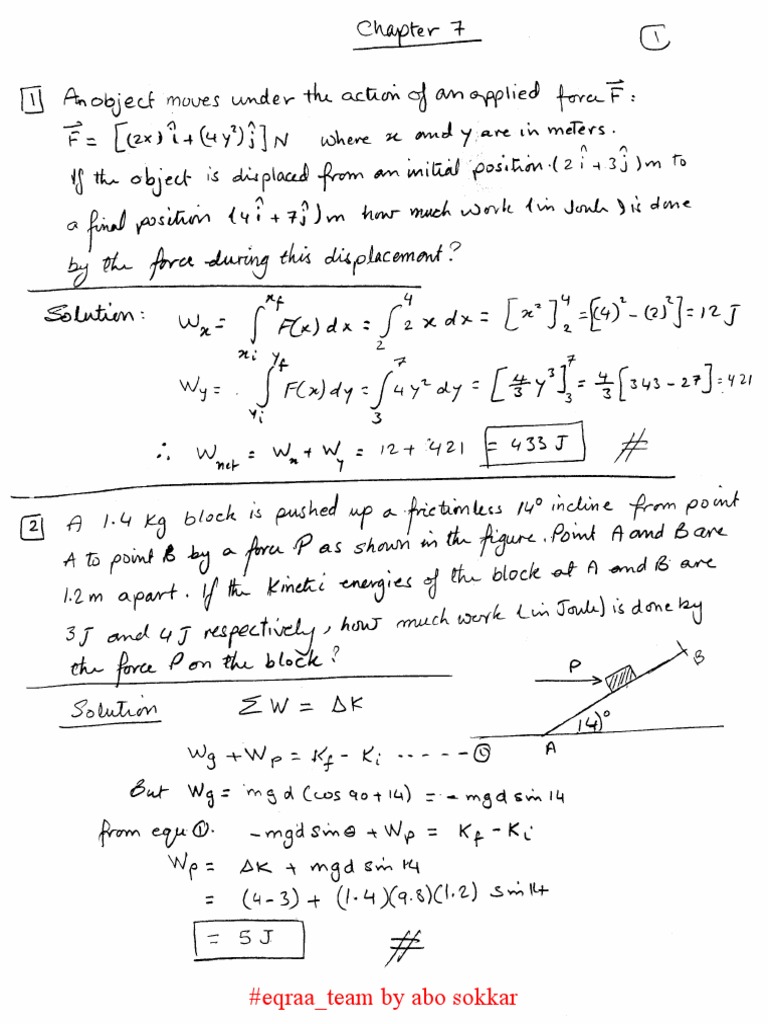 Chapter 7
1
1 An object moves under the action of an applied force F⃗ :
F⃗ = [(2x) î + (4y²) ĵ] N where x and y are in meters.
If the object is displaced from an initial position (2î + 3ĵ) m to
a final position (4î + 7ĵ) m how much work (in Joule) is done
by the force during this displacement?
Solution: Wx = ∫xi^xf F(x) dx = ∫2^4 2 x dx = [x²]2^4 = [(4)² - (2)²] = 12 J
Wy = ∫yi^yf F(x) dy = ∫3^7 4y² dy = [4/3 y³]3^7 = 4/3 [343 - 27] = 421
∴ Wnet = Wx + Wy = 12 + 421 = 433 J #
2 A 1.4 kg block is pushed up a frictionless 14° incline from point
A to point B by a force P as shown in the figure. Point A and B are
1.2 m apart. If the Kinetic energies of the block at A and B are
3 J and 4 J respectively, how much work (in Joule) is done by
the force P on the block?
P
B
14°
A
Solution ΣW = ΔK
Wg + Wp = Kf - Ki ------ ①
But Wg = mgd (cos 90 + 14) = - mgd sin 14
from equ ①. -mgd sin θ + Wp = Kf - Ki
Wp = ΔK + mgd sin 14
= (4-3) + (1.4)(9.8)(1.2) sin 14
= 5 J #
#eqraa_team by abo sokkar